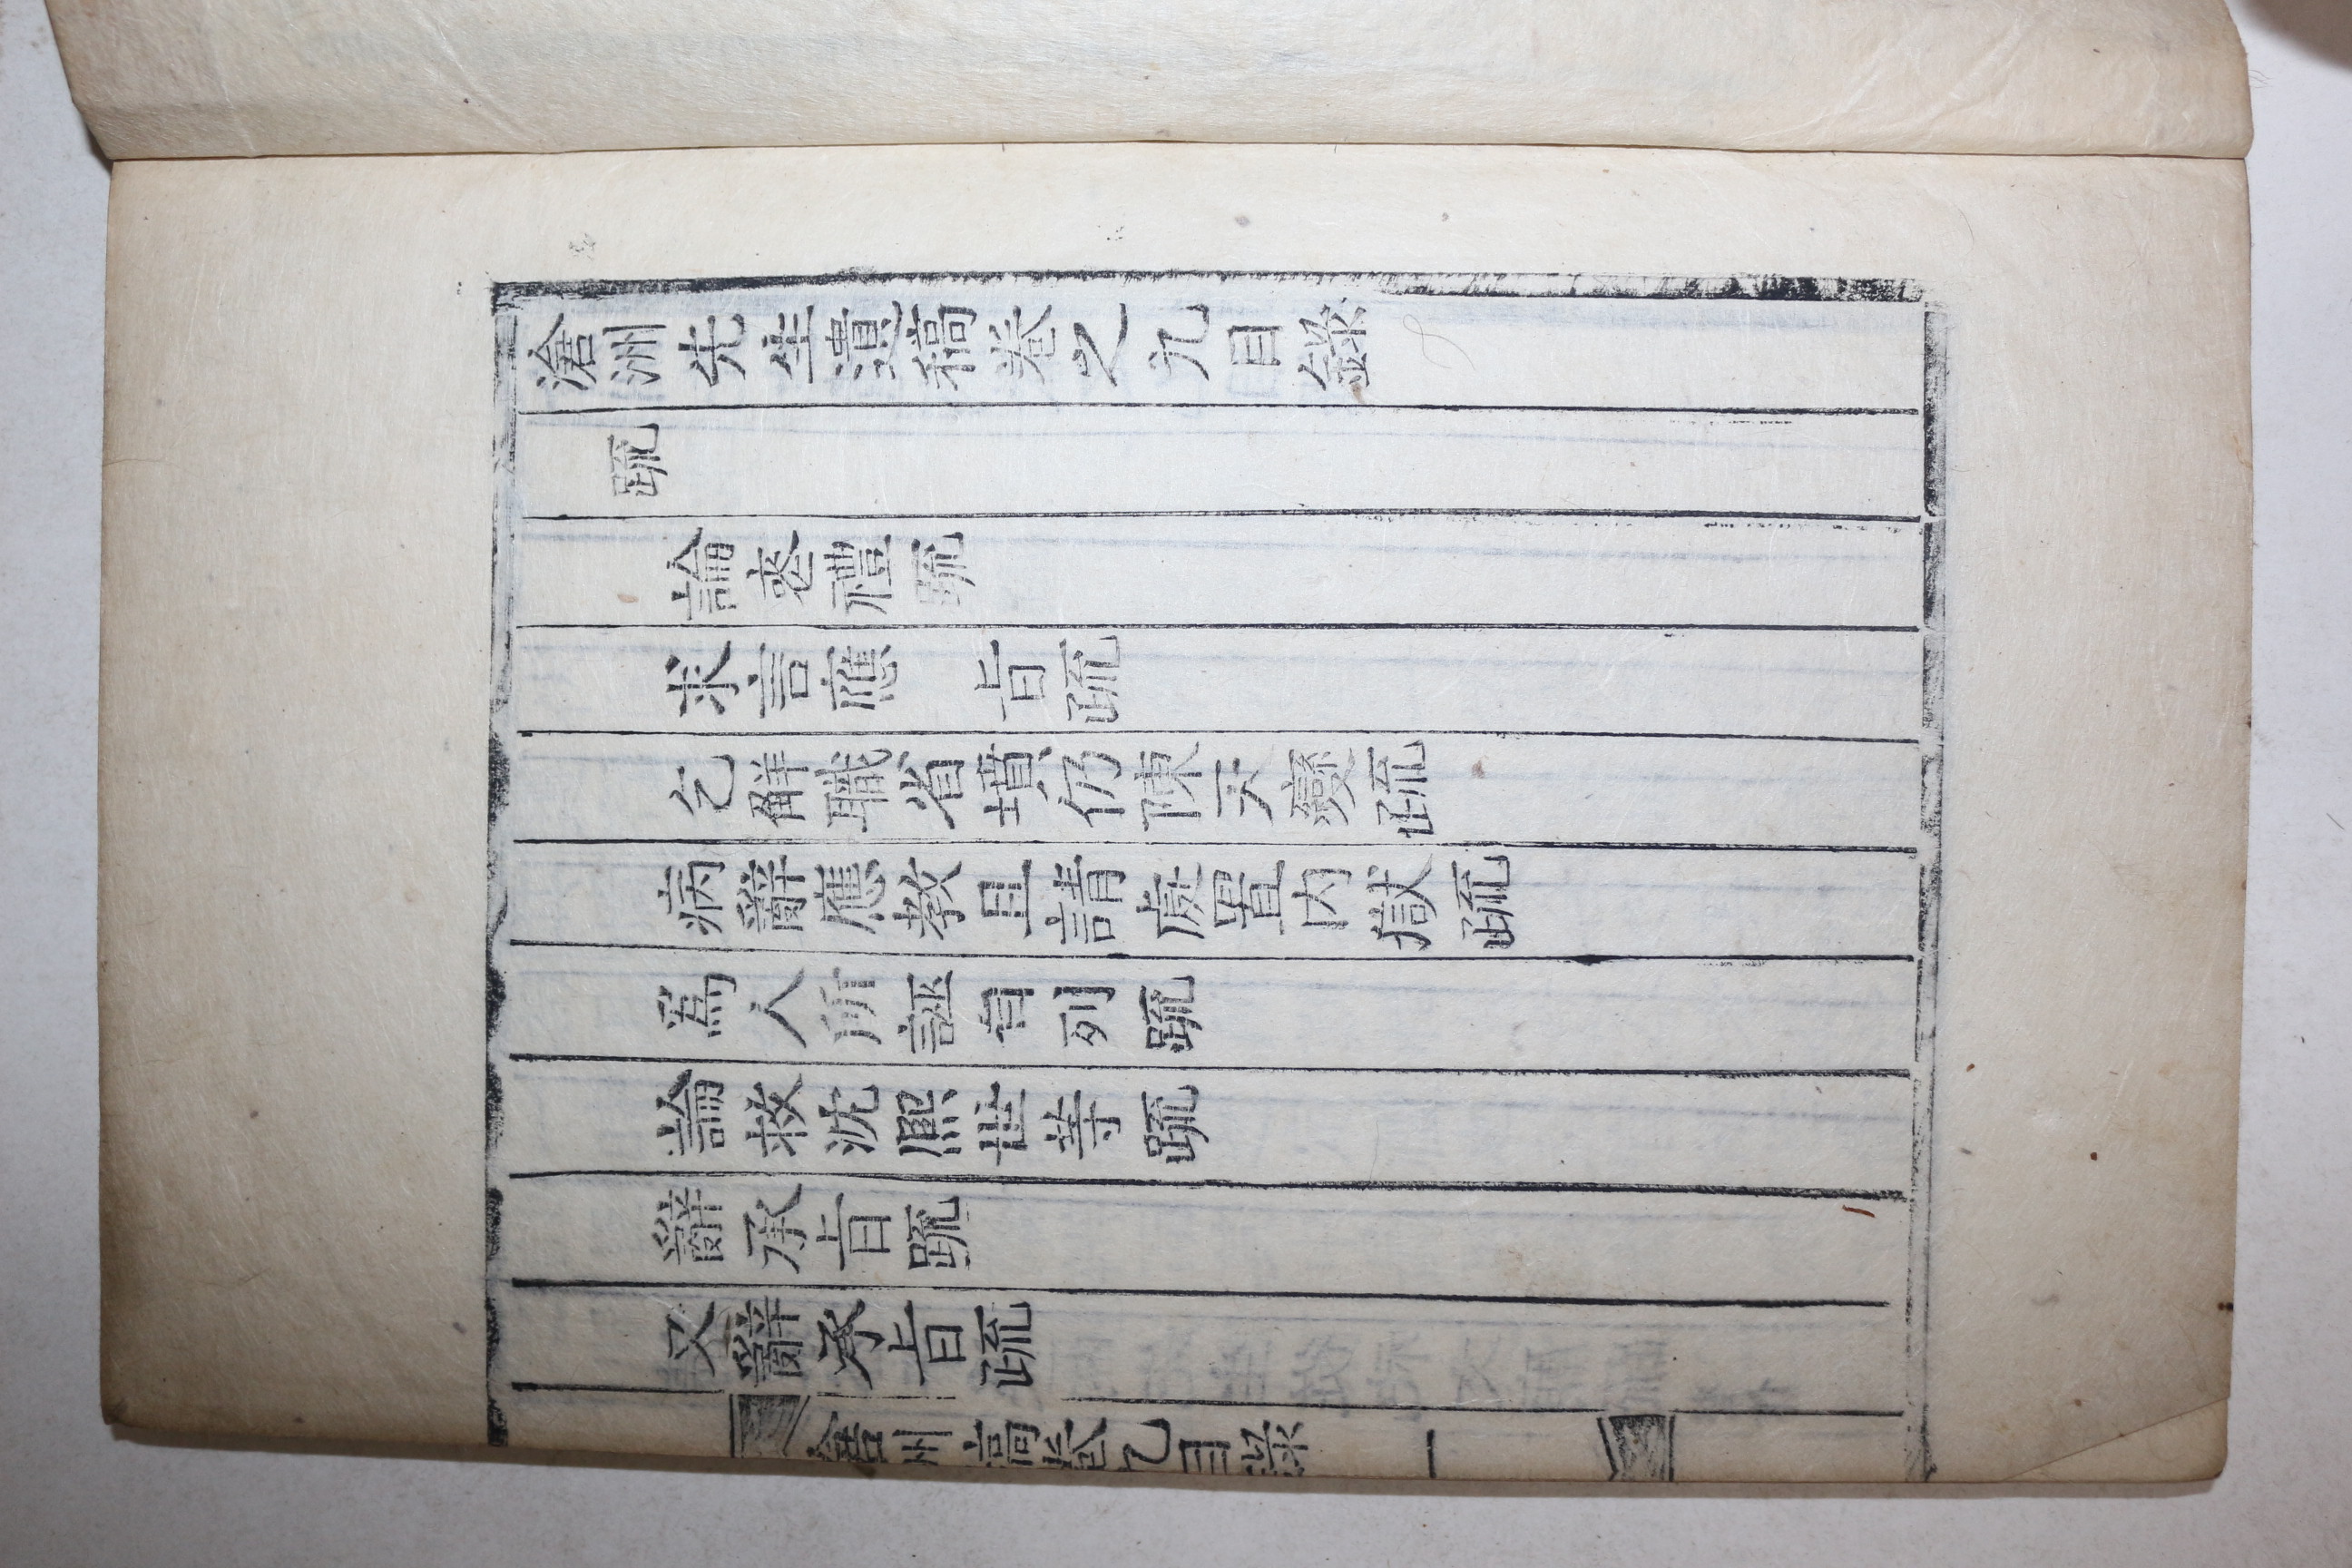 滄洲先生遺稿卷之九目錄
疏
論喪禮疏
求言應 旨疏
乞解職省墳仍陳天變疏
病辭應敎且請虛置內獄疏
爲人所誣自列疏
論救沈熙世等疏
辭承旨疏
又辭承旨疏
滄洲稿卷九目錄 一